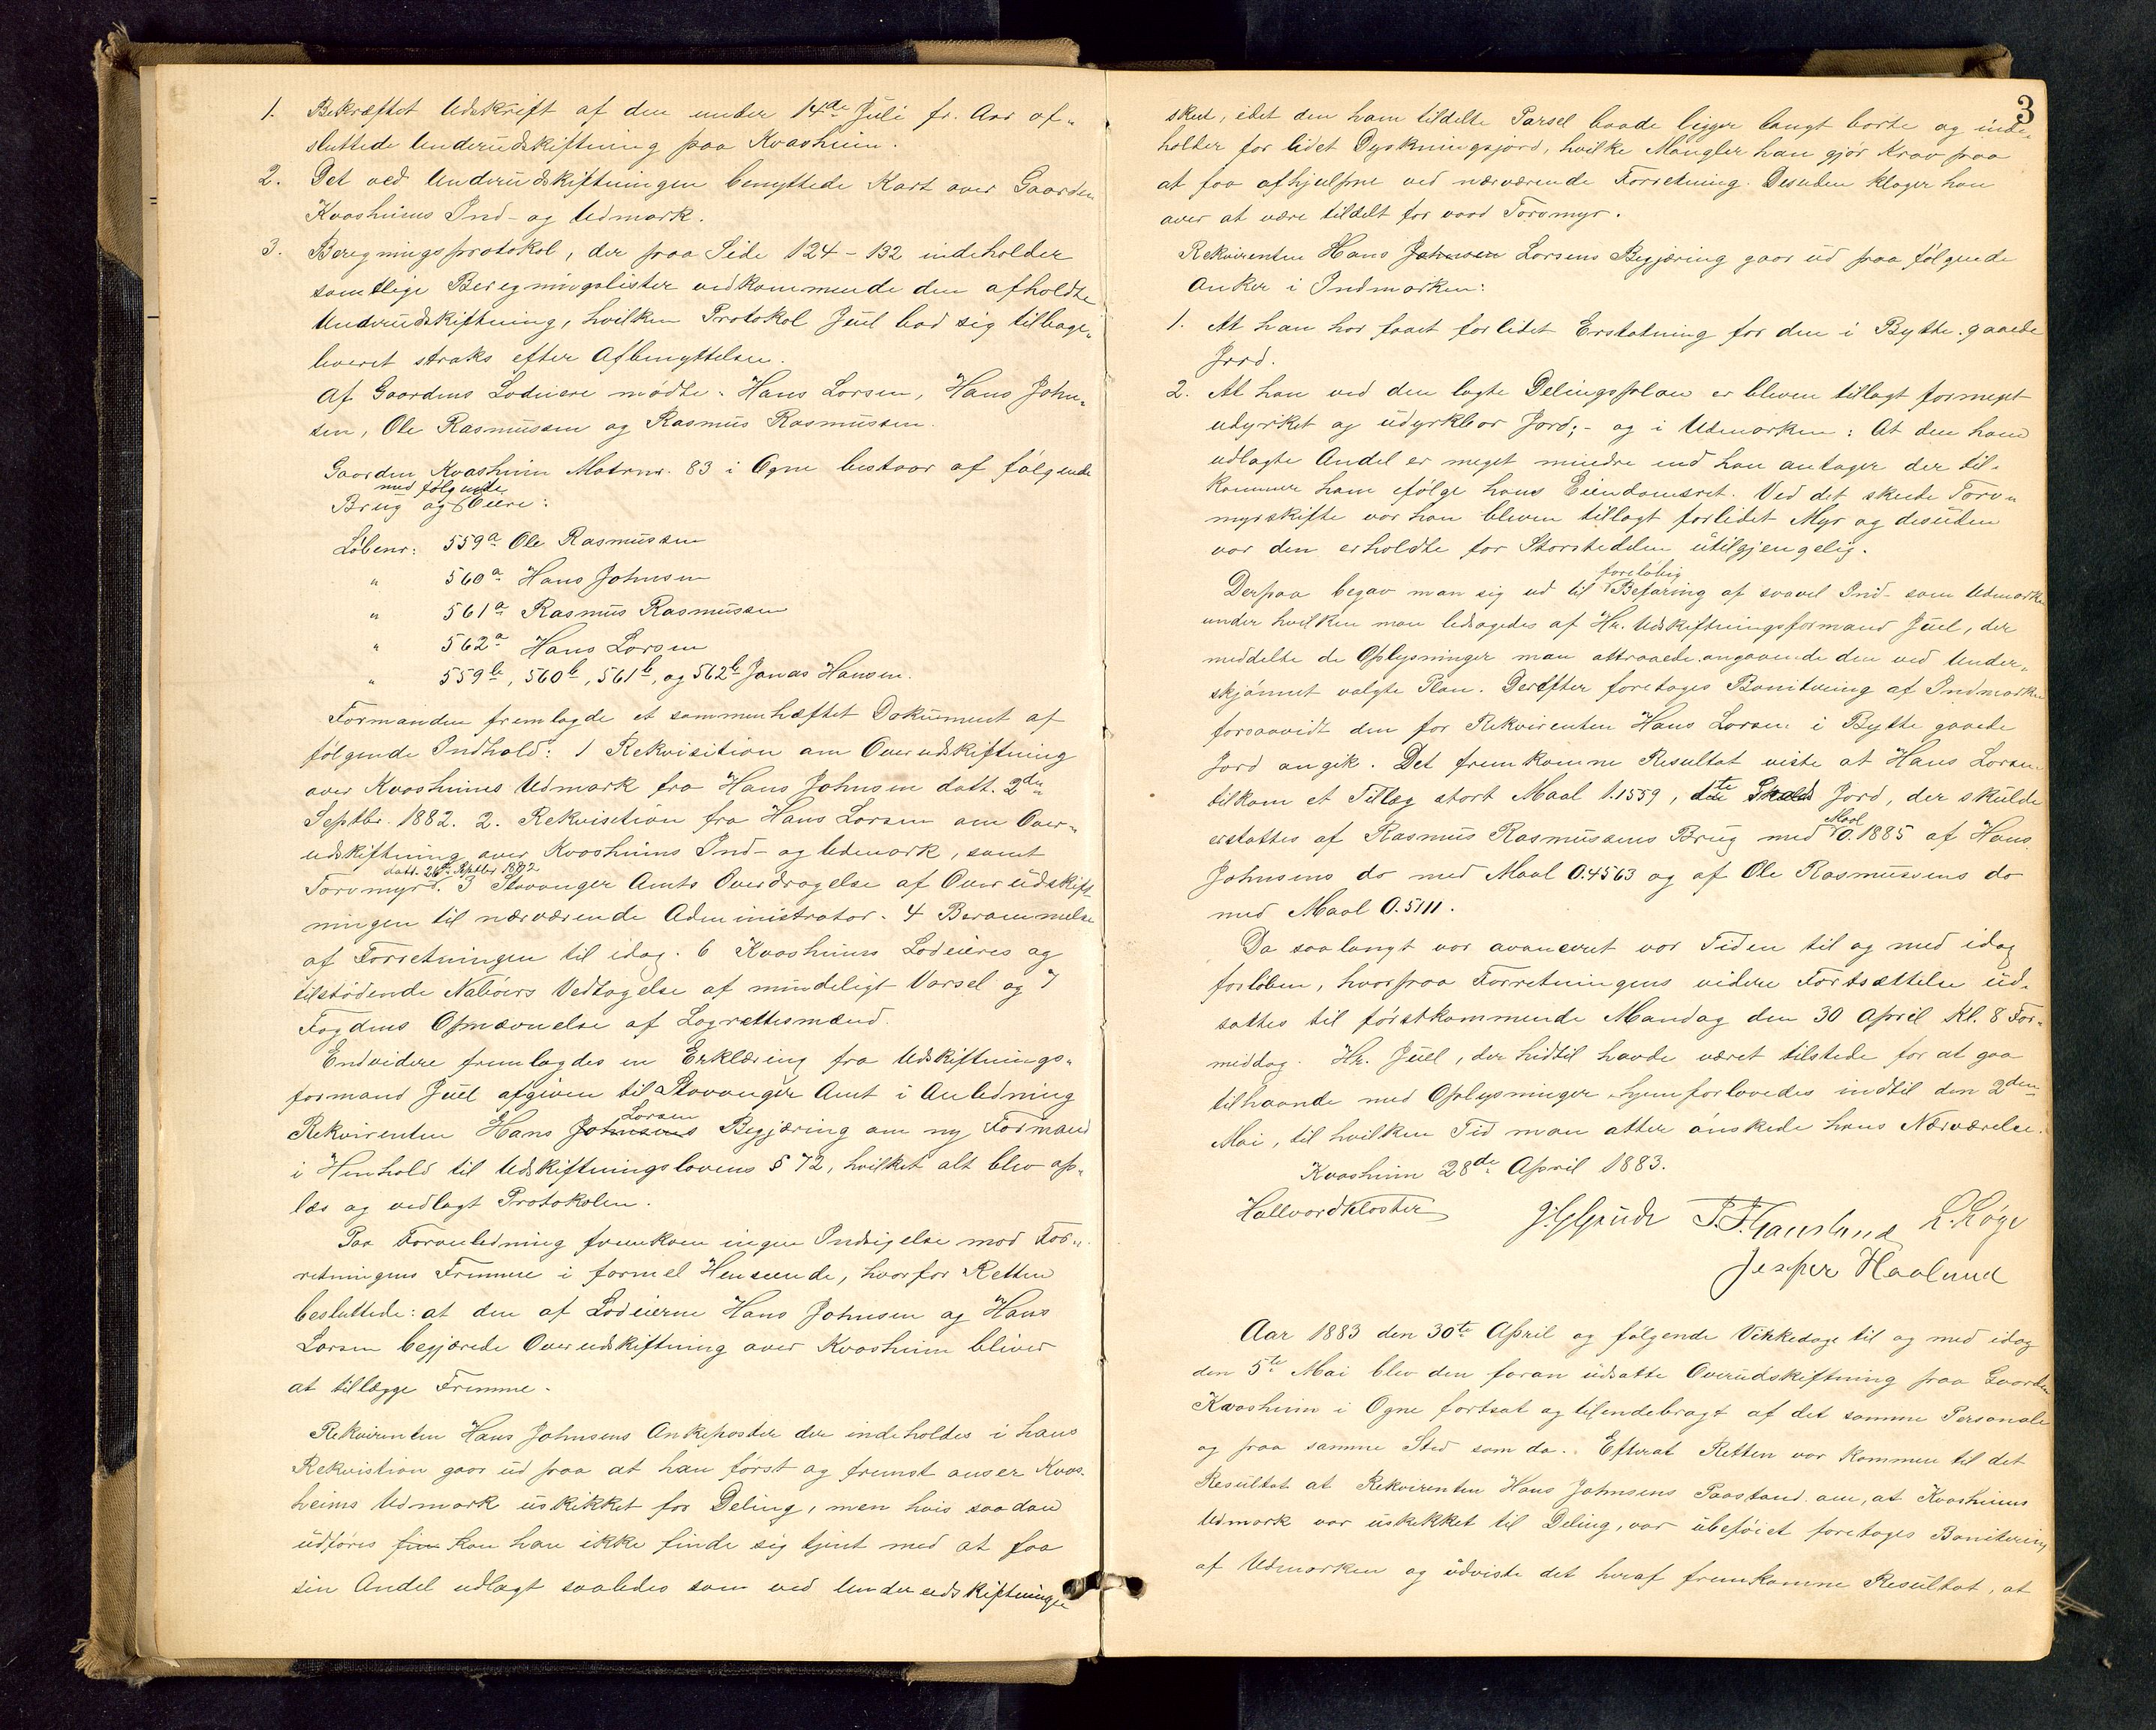 1. Bekræftet Udskrift af den under 14de Juli fr. Aar af-
sluttede Underudskiftning paa Kvasheim.
2. Det ved Underudskiftningen benyttede Kart over Gaarden
Kvasheims Ind- og Udmark.
3. Beregningsprotokol, der paa Side 124-132 indeholder
samtlige Beregningslister vedkommende den afholdte
Underudskiftning, hvilken Protokol Juel bad sig tilbage-
leveret straks efter Afbenyttelsen.
Af Gaardens Lodeiere mødte. Hans Larsen, Hans John-
sen, Ole Rasmussen og Rasmus Rasmussen.
Gaarden Kvasheim Matrnr. 83 i Ogne bestaar af følgende
med følgende
Brug og Eiere:
Løbenr: 559a Ole Rasmussen
" 560a Hans Johnsen
" 561a Rasmus Rasmussen
" 562a Hans Larsen
" 559b, 560b, 561b, og 562b Jonas Hansen.
Formanden fremlagde et sammenhæftet Dokument af
følgende Indhold: 1 Rekvisition om Overudskiftning
over Kvasheims Udmark fra Hans Johnsen datt. 2den
Septbr. 1882. 2. Rekvisition fra Hans Larsen om Over-
udskiftning over Kvasheims Ind- og Udmark, samt
datt. Septbr 1882
Torvmyr. 3 Stavanger Amts Overdragelse af Overudskift-
ningen til nærværende Administrator. 4 Berammelse
af Forretningen til idag. 6 Kvasheims Lodeieres og
tilstødende Naboers Vedtagelse af mindeligt Varsel og 7
Fogdens Opnævnelse af Lagrettesmænd.
Endvidere fremlagdes en Erklæring fra Udskiftnings-
formand Juel afgiven til Stavanger Amt i Anledning
Larsen
Rekvirenten Hans Johnsens Begjæring om ny Formand
i Henhold til Udskiftningslovens § 72, hvilket alt blev op-
læs og vedlagt Protokolen.
Paa Foranledning fremkom ingen Indsigelse mod For-
retningens Fremme i formel Henseende, hvorfor Retten
besluttede: at den af Lodeierne Hans Johnsen og Hans
Larsen begjærede Overudskiftning over Kvasheim bliver
at tillægge Fremme.
Rekvirenten Hans Johnsens Ankeposter der indeholdes i hans
Rekvistion gaar ud paa at han først og fremst anser Kvas-
heims Udmark uskikket for Deling, men hvis saadan
udføres fin kan han ikke finde sig tjent med at faa
sin Andel udlagt saaledes som ved Underudskiftningen
3
sked, idet den ham tildelte Parsel baade ligger langt borte og inde-
holder for lidet Dyrkningsjord, hvilke Mangler han gjør Krav paa
at faa afhjulpne ved nærværende Forretning. Desuden klager han
over at være tildelt for vaad Torvmyr.
Rekvirenten Hans Johnsen Larsens Begjæring gaar ud paa følgende
Anker i Indmarken:
1. At han har faaet forlidet Erstatning for den i Bytte gaaede
Jord.
2. At han ved den lagte Delingsplan er bleven tillagt formeget
udyrket og udyrkbar Jord; - og i Udmarken: At den ham
udlagte Andel er meget mindre end han antager der til-
kommer ham ifølge hans Eiendomsret. Ved det skeede Torv-
myrskifte var han bleven tillagt forlidet Myr og desuden
var den erholdte for Størstedelen utilgjengelig.
foreløbig
Derpaa begav man sig ud til Befaring af saavel Ind- som Udmarken
under hvilken man ledsagedes af Hr. Udskiftningsformand Juel, der
meddelte de Oplysninger man attraaede angaaende den ved Under-
skjønnet valgte Plan. Derefter foretoges Bonitering af Indmarken
forsaavidt den for Rekvirenten Hans Larsen i Bytte gaaede
Jord angik. Det fremkomne Resultat viste at Hans Larsen
tilkom et Tillæg stort Maal 1.1559, Jord, der skulde
Maal
erstattes af Rasmus Rasmussens Brug med 0.1885 af Hans
Johnsens do med Maal 0.4563 og af Ole Rasmussens do
med Maal 0.5111.
Da saalangt var avanceret var Tiden til og med idag
forløben, hvorpaa Forretningens videre Fortsættelse ud-
sattes til førstkommende Mandag den 30 April Kl. 8 For-
middag. Hr. Juel, der hidtil havde været tilstede for at gaa
tilhaande med Oplysninger hjemforlovedes indtil den 2den
Mai, til hvilken Tid man atter ønskede hans Nærværelse.
Kvasheim 28de April 1883.
Hallvard Kloster J. G. Grude L. Køge
Jesper Haaland
Aar 1883 den 30te April og følgende Virkedage til og med idag
den 5te Mai blev den foran udsatte Overudskiftning paa Gaarden
Kvasheim i Ogne fortsat og tilendebragt af det samme Personale
og paa samme Sted som da. Efterat Retten var kommen til det
Resultat at Rekvirenten Hans Johnsens Paastand om, at Kvasheims
Udmark var uskikket til Deling, var ubeføiet foretoges Bonitering
af Udmarken og udviste det heraf fremkomne Resultat, at